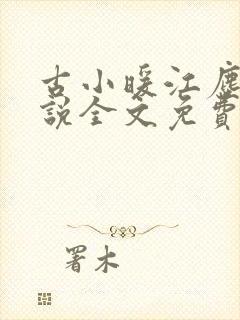 古小暖江尘
说全文免费
署木